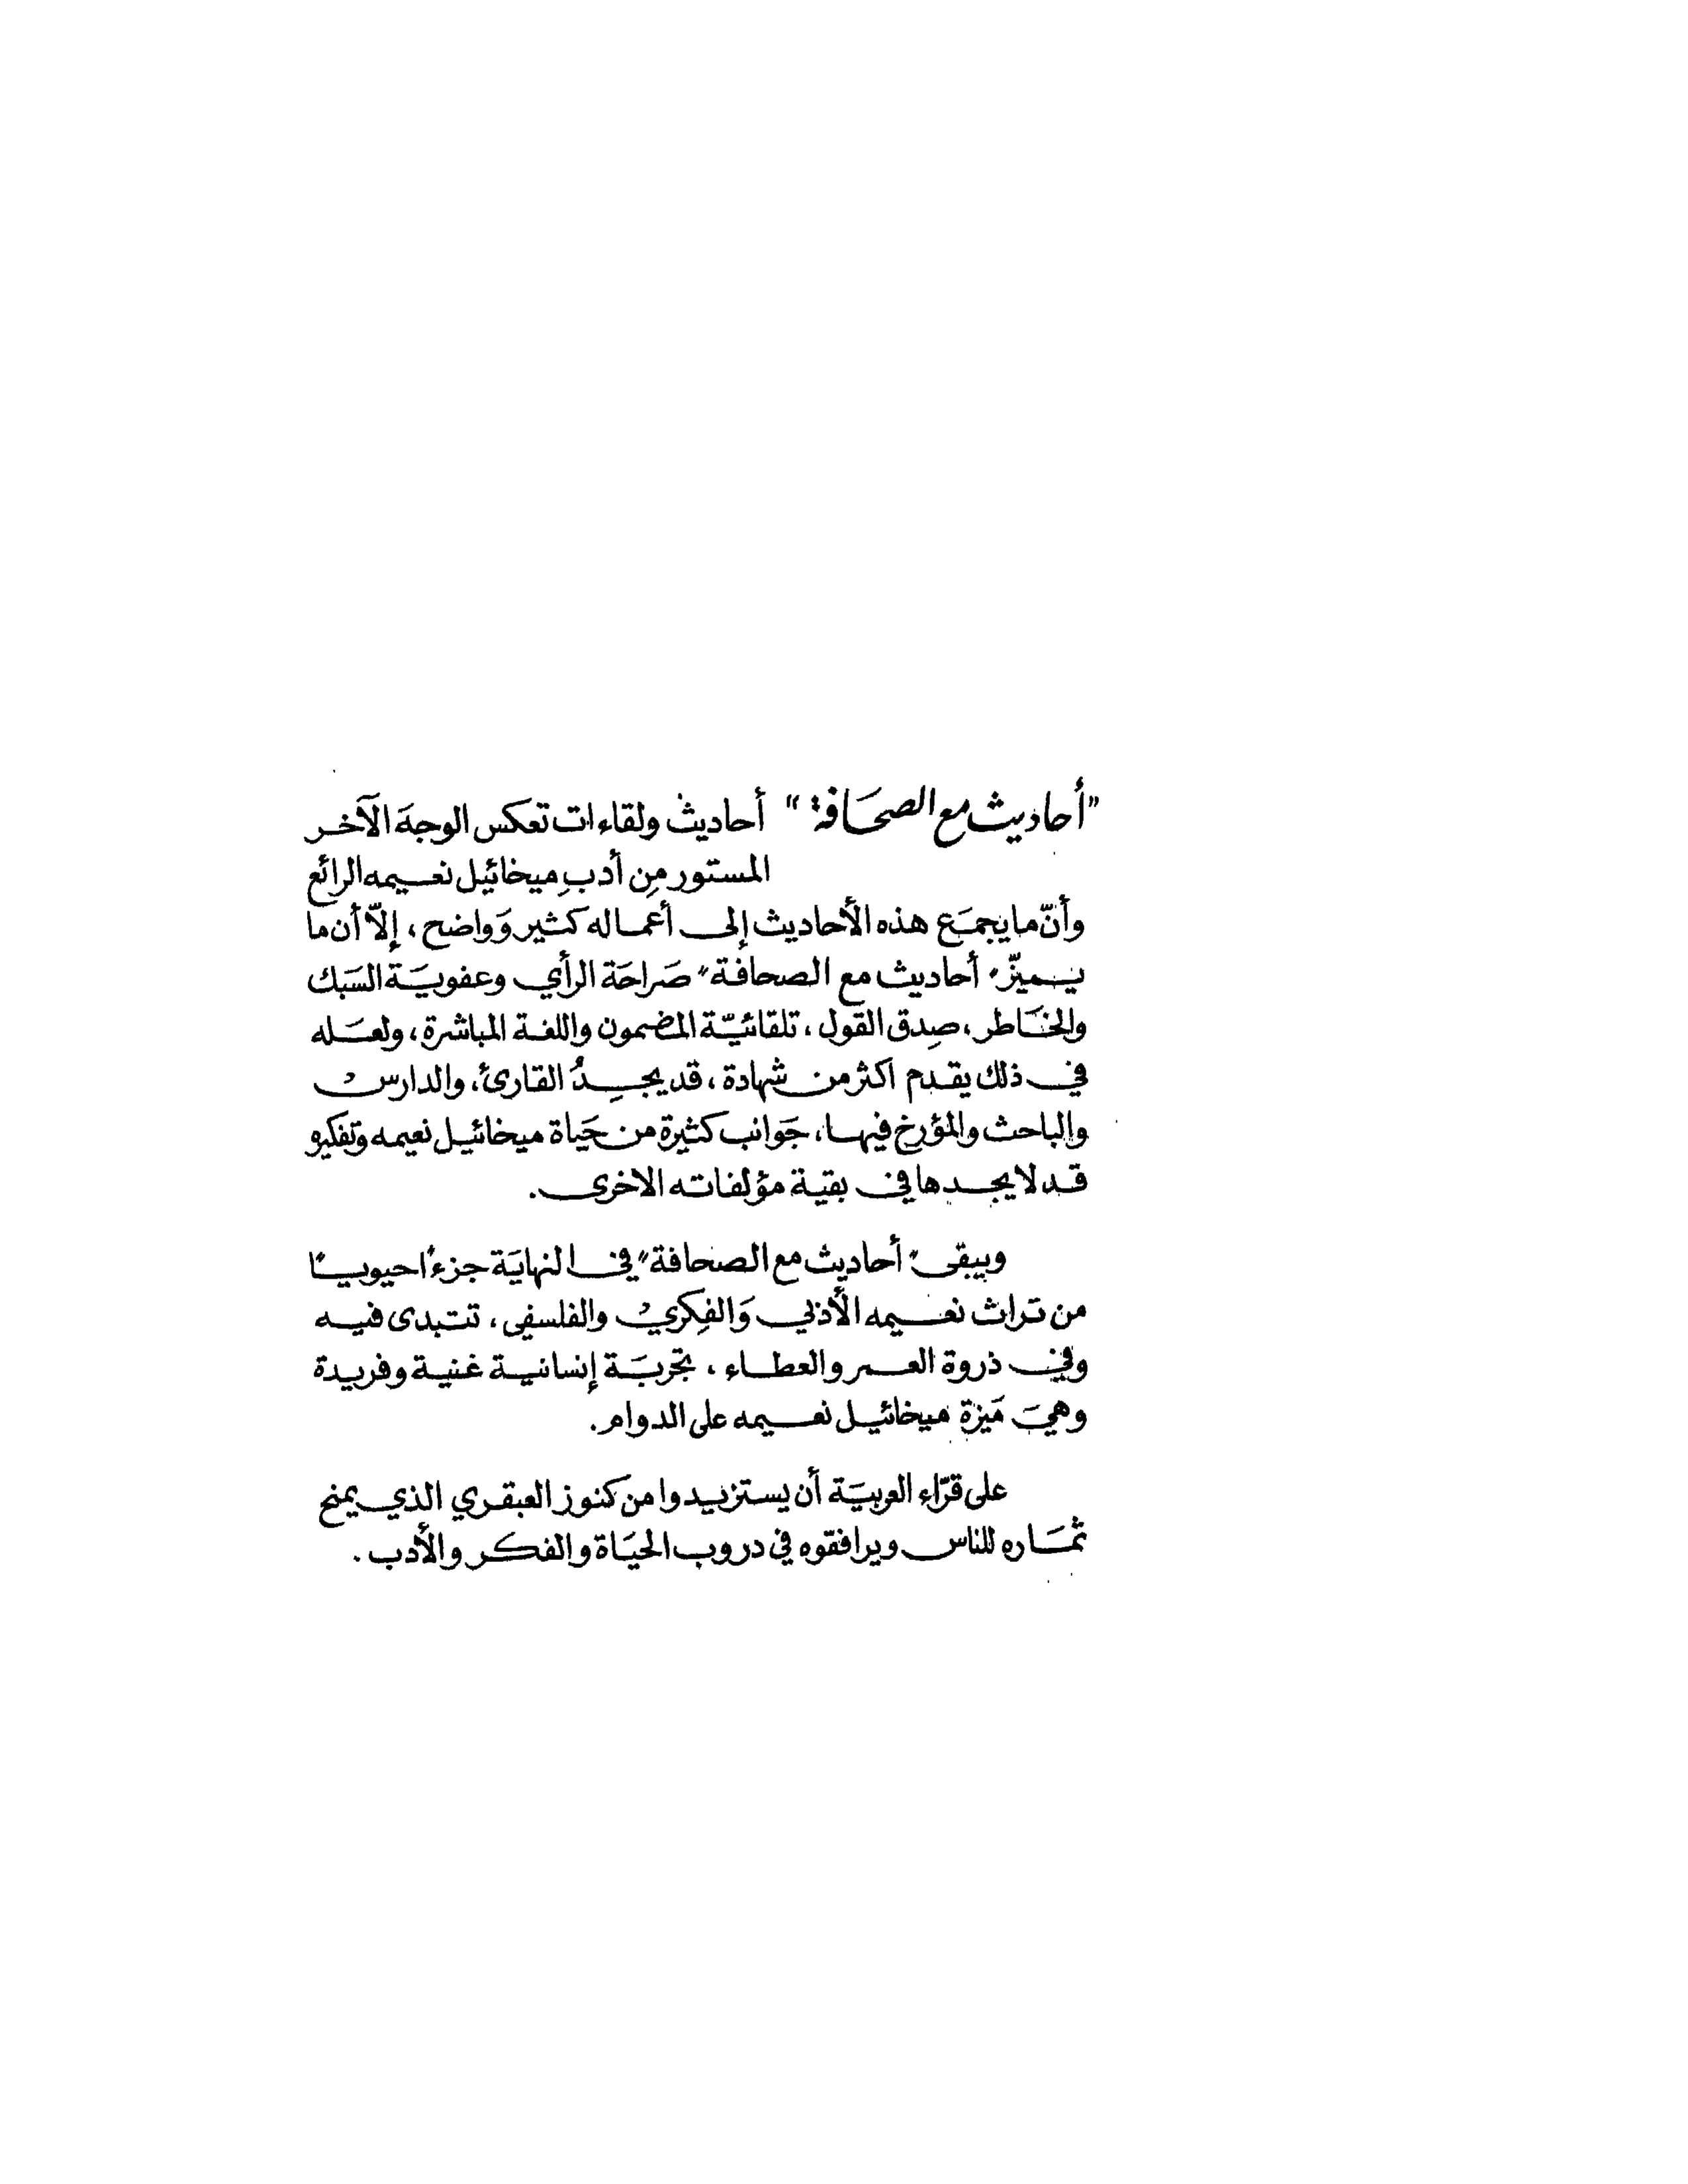 "أحاديث مع الصحَافة" أحاديث ولقاءات تعكس الوجهَ الآخر
المستور مِن أدبِ ميخائيل نعيمه الرائع
وأنّ ما يجمَع هذه الأحاديث إلى أعماله كثير وَواضح، إلاّ أن ما
يميّز "أحاديث مع الصحافة" صَراحَة الرأي وعفويَة السَبك
والخَاطر، صِدق القول، تلقائيّة المضمون واللغة المباشرة، ولعَله
في ذلك يقدم اكثر من شهادة، قد يجِدُ القارئ، والدارس
والباحث والمؤرخ فيها، جَوانب كثيرة من حَياة ميخائيل نعيمه وتفكيره
قد لا يجدها في بقية مؤلفاته الاخرى.
ويبقى "أحاديث مع الصحافة" في النهايَة جزءًا حيويـًا
من تراث نعيمه الأدبي وَالفِكري والفلسفي، تتبدى فيه
وفي ذروة العمر والعطاء، تجربَة إنسانية غنية وفريدة
وهيَ مَيزة ميخائيل نعيمه على الدوام.
على قرّاء العربيَة أن يستزيدوا من كنوز العبقري الذي يمنح
ثمَاره للناس ويرافقوه في دروب الحيَاة والفكر والأدب.